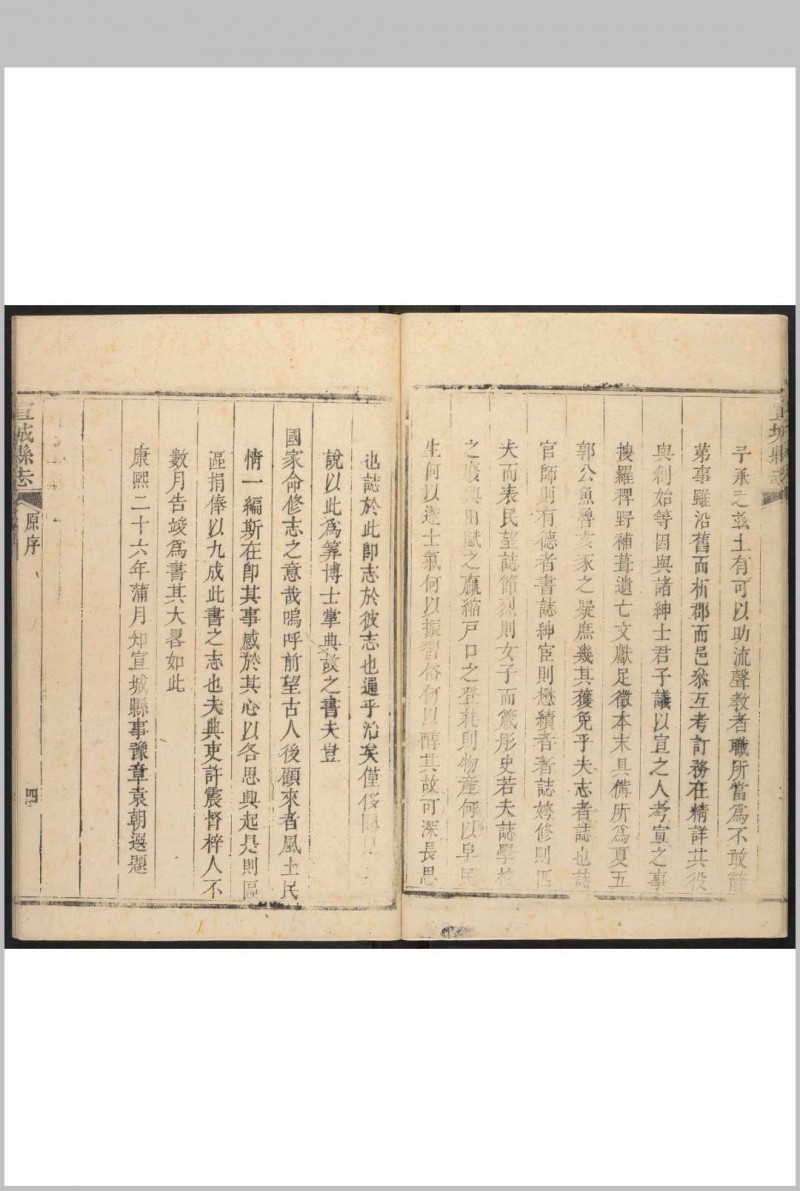 予承乏茲土有可以助流聲教者職所當爲不敢辭
第事雖沿舊而析郡而邑叅互考訂務在精詳其役
與創始等因與諸紳士君子議以宣之人考宣之事
搜羅稗野補葺遺亡文獻足徵本末具備所爲夏五
郭公魚魯亥豕之疑庶幾其獲免乎夫志者誌也誌
官師則有德者書誌紳宦則懋績者著誌嫮修則匹
夫而表民望誌節烈則女子而箴彤史若夫誌學校
之廢興田賦之贏縮戸口之登耗則物産何以阜民
生何以遂士氣何以振習俗何以醇其故可深長思
宣城縣志
也誌於此卽志於彼志也通乎治矣僅侈
說以此爲筭博士掌典故之書夫豈
國家命修志之意哉嗚呼前望古人後顧來者風土民
情一編斯在卽其事感於其心以各思興起是則區
區捐俸以九成此書之志也夫典吏許震督梓人不
數月告竣爲書其大畧如此
康熙二十六年蒲月知宣城縣事豫章袁朝選題
宣城縣志 原序 四